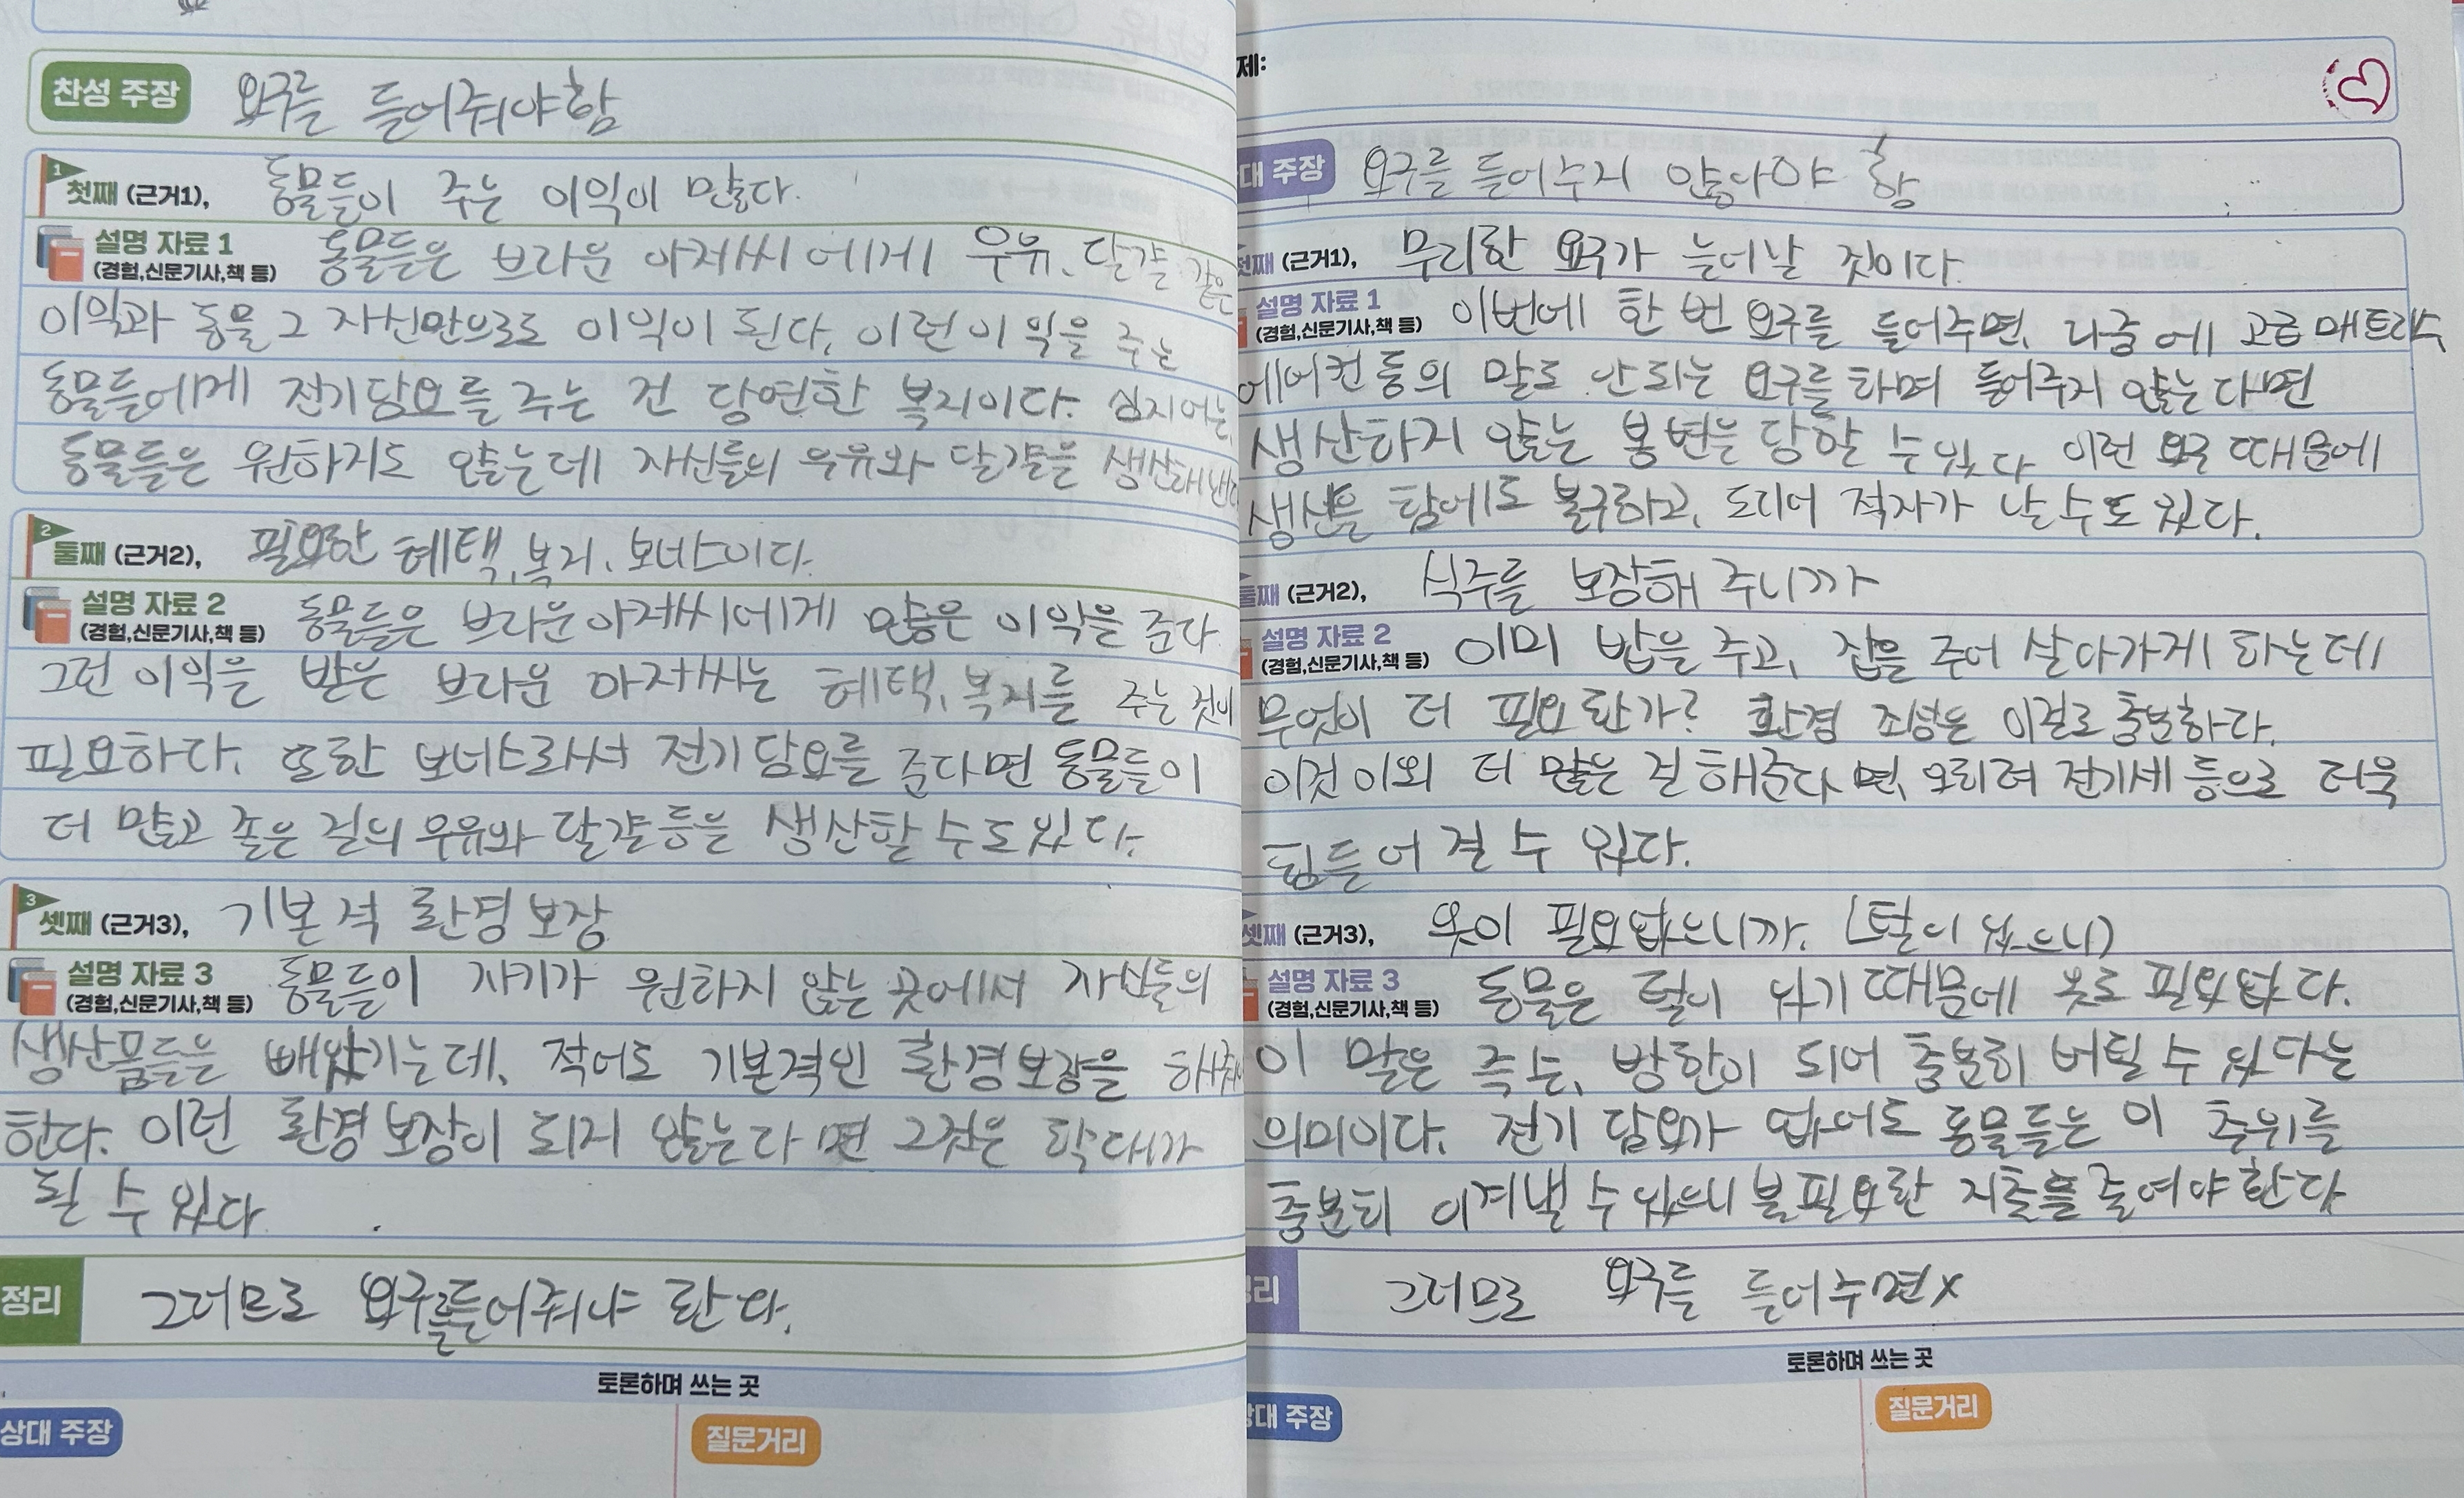 찬성 주장 요구를 들어줘야함
1
첫째 (근거1), 동물들이 주는 이익이 많다.
설명 자료 1 동물들은 브라운 아저씨에게 우유, 달걀 같은
(경험,신문기사,책 등)
이익과 동물 그 자신만으로도 이익이 된다. 이런 이익을 주는
동물들에게 전기담요를 주는 건 당연한 복지이다. 심지어는,
동물들은 원하지도 않는데 자신들의 우유와 달걀을 생산해낸다
2
둘째 (근거2), 필요한 혜택, 복지, 보너스이다.
설명 자료 2 동물들은 브라운아저씨에게 많은 이익을 준다.
(경험,신문기사,책 등)
그런 이익을 받은 브라운 아저씨는 혜택, 복지를 주는 것이
필요하다. 또한 보너스라서 전기담요를 준다면 동물들이
더 많고 좋은 질의 우유와 달걀등을 생산할 수도 있다.
3
셋째 (근거3), 기본적 환경보장
설명 자료 3 동물들이 자기가 원하지 않는 곳에서 자신들의
(경험,신문기사,책 등)
생산품들을 빼앗기는데, 적어도 기본적인 환경보장을 해줘야
한다. 이런 환경보장이 되지 않는다면 그것은 학대가
될 수 있다.
정리 그러므로 요구를들어줘야 한다.
토론하며 쓰는 곳
상대 주장 질문거리
제:
대 주장 요구를 들어주지 않아야 함
첫째 (근거1), 무리한 요구가 늘어날 것이다.
설명 자료 1 이번에 한 번 요구를 들어주면, 나중에 고급매트리스
(경험,신문기사,책 등)
에어컨 등의 말도 안되는 요구를 하며 들어주지 않는다면
생산하지 않는 봉변을 당할 수 있다 이런 요구 때문에
생산을 함에도 불구하고, 도리어 적자가 날 수도 있다.
둘째 (근거2), 식주를 보장해 주니까
설명 자료 2 이미 밥을 주고, 집을 주어 살아가게 하는데
(경험,신문기사,책 등)
무엇이 더 필요한가? 환경 조성은 이걸로 충분하다.
이것 이외 더 많은 걸 해준다면, 오히려 전기세 등으로 더욱
힘들어 질 수 있다.
셋째 (근거3), 옷이 필요없으니까. (털이 있으니)
설명 자료 3 동물은 털이 있기 때문에 옷도 필요없다.
(경험,신문기사,책 등)
이 말은 즉슨, 방한이 되어 충분히 버틸 수 있다는
의미이다. 전기 담요가 없어도 동물들은 이 추위를
충분히 이겨낼 수 있으니 불필요한 지출을 줄여야 한다
리 그러므로 요구를 들어주면x
토론하며 쓰는 곳
상대 주장 질문거리